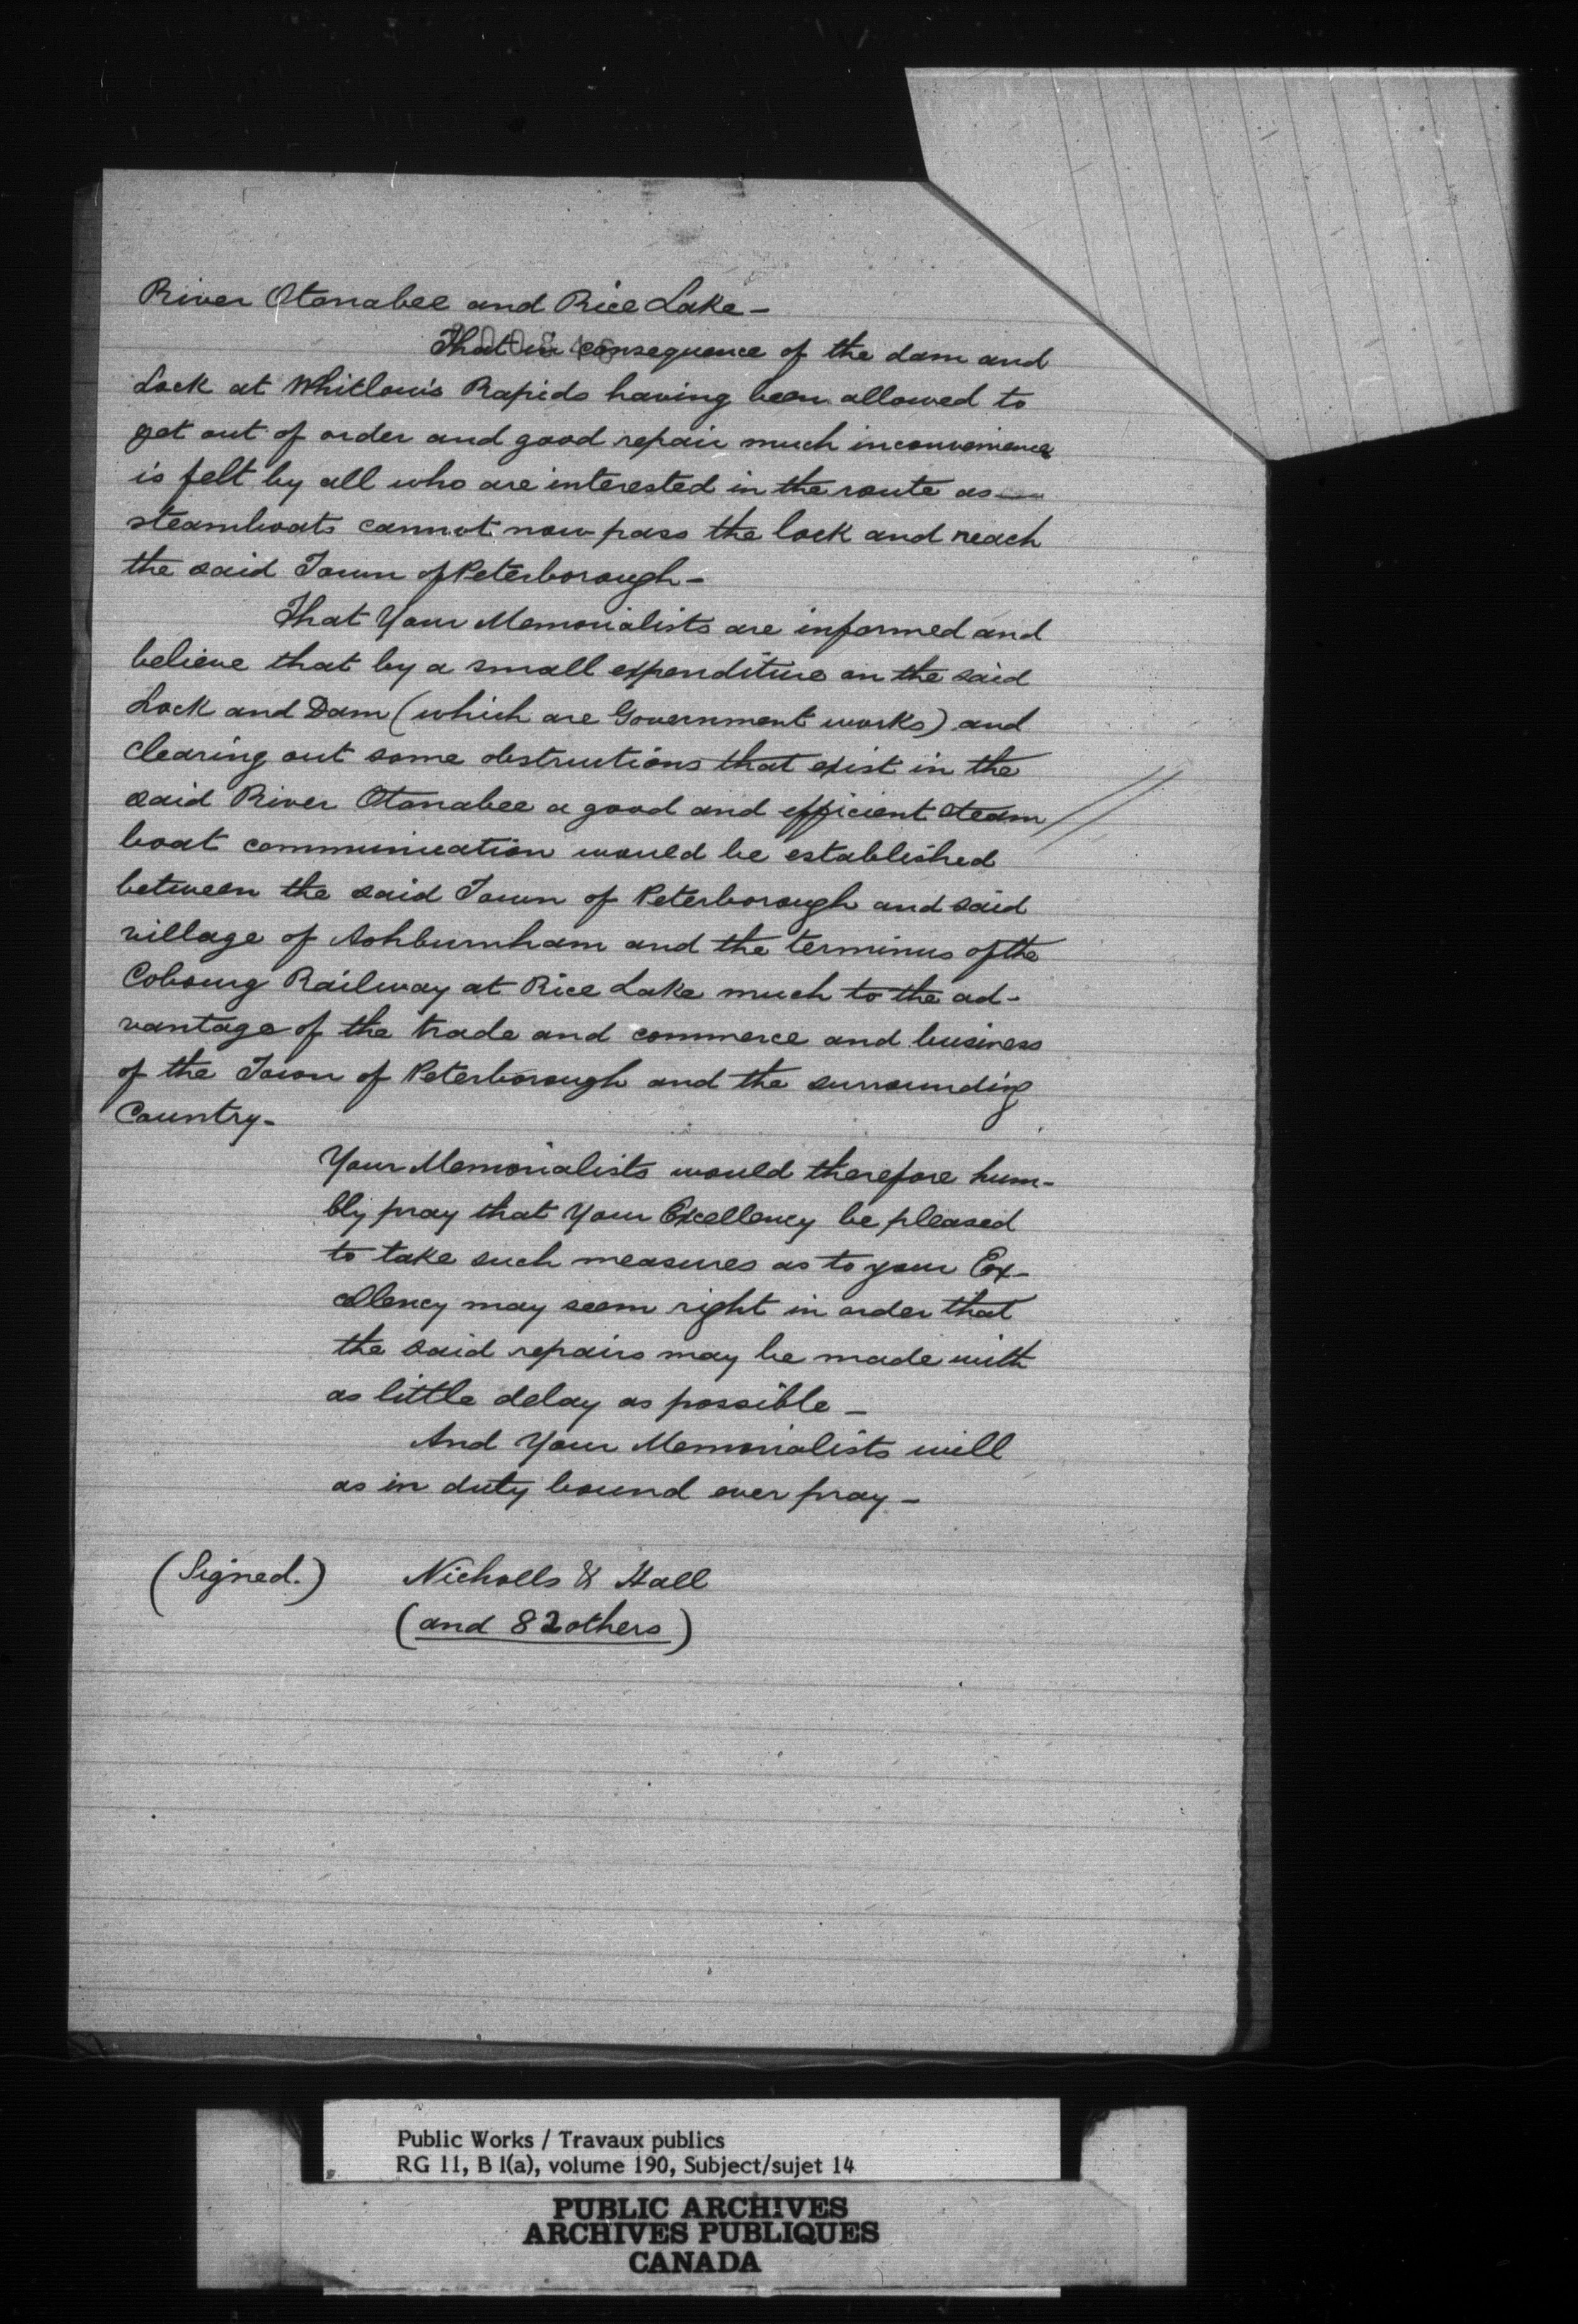 River Otanabee and Rice Lake -
That in consequence of the dam and
Lock at Whitlow's Rapids having been allowed to
get out of order and good repair much inconvenience
is felt by all who are interested in the route as
steamboats cannot now pass the lock and reach
the said Town of Peterborough -
That Your Memorialists are informed and
believe that by a small expenditure on the said
Lock and Dam (which are Government works) and
clearing out some obstructions that exist in the
said River Otanabee a good and efficient steam
boat communication would be established
between the said Town of Peterborough and said
village of Ashburnham and the terminus of the
Cobourg Railway at Rice Lake much to the ad-
vantage of the trade and commerce and business
of the Town of Peterborough and the surrounding
Country -
Your Memorialists would therefore hum-
bly pray that Your Excellency be pleased
to take such measures as to your Ex-
cellency may seem right in order that
the said repairs may be made with
as little delay as possible -
And Your Memorialists will
as in duty bound ever pray -
(Signed.) Nicholls & Hall
(and 82 others)
Public Works / Travaux publics
RG 11, B 1(a), volume 190, Subject/sujet 14
PUBLIC ARCHIVES
ARCHIVES PUBLIQUES
CANADA